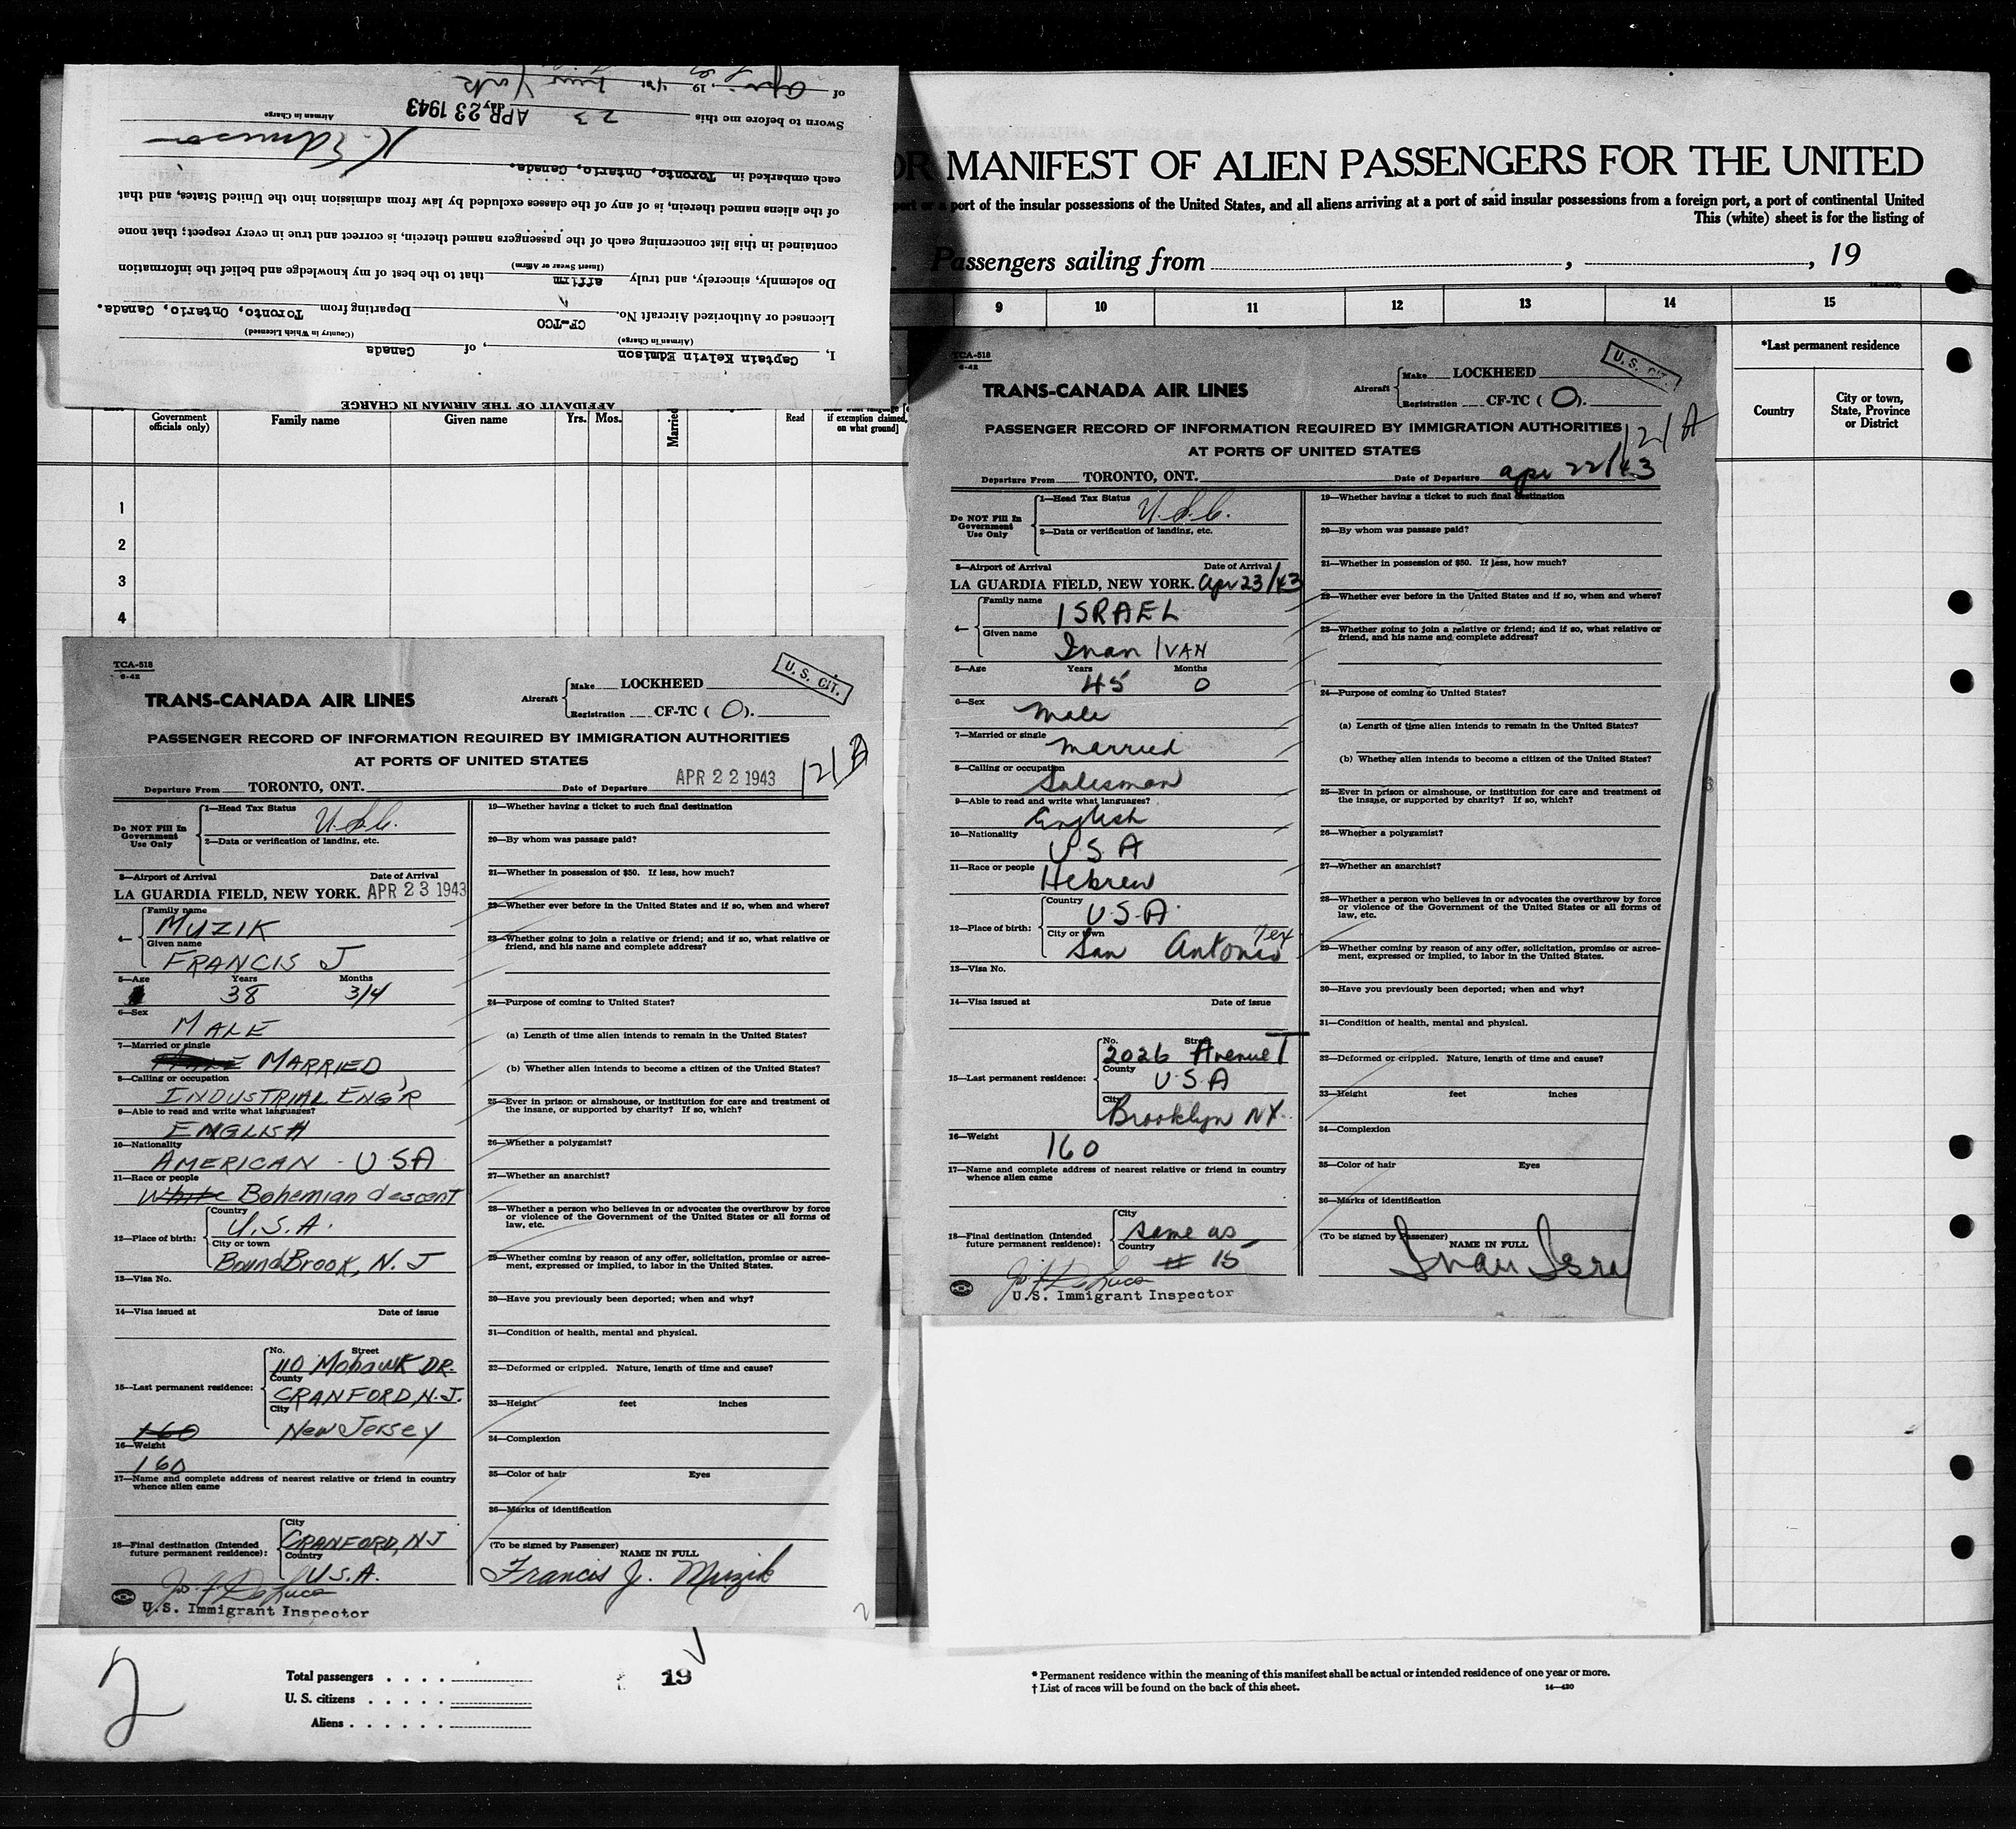 AFFIDAVIT OF THE AIRMAN IN CHARGE
I, Captain Kelvin Edmison, of Canada
(Airman in Charge) (Country in Which Licensed)
Licensed or Authorized Aircraft No. CF-TCO Departing from Toronto, Ontario, Canada.
Do solemnly, sincerely, and truly affirm that to the best of my knowledge and belief the information
(Insert Swear or Affirm)
contained in this list concerning each of the passengers named therein, is correct and true in every respect; that none
of the aliens named therein, is of any of the classes excluded by law from admission into the United States, and that
each embarked in Toronto, Ontario, Canada.
K. Edmison
Airman in Charge
Sworn to before me this 23 day APR 23 1943
of Apr, 19 New York
OR MANIFEST OF ALIEN PASSENGERS FOR THE UNITED
port or a port of the insular possessions of the United States, and all aliens arriving at a port of said insular possessions from a foreign port, a port of continental United
This (white) sheet is for the listing of
Passengers sailing from , , 19
9 10 11 12 13 14 15
*Last permanent residence
Country City or town, State, Province or District
Government officials only)
Family name
Given name
Yrs. Mos.
Married
Read
if exemption claimed, on what ground]
1
2
3
4
TCA-518
6-42
U. S. CIT.
TRANS-CANADA AIR LINES
Aircraft Make LOCKHEED
Registration CF-TC ( O ).
PASSENGER RECORD OF INFORMATION REQUIRED BY IMMIGRATION AUTHORITIES
AT PORTS OF UNITED STATES
121B
Departure From TORONTO, ONT. Date of Departure APR 22 1943
Do NOT Fill In Government Use Only
1—Head Tax Status
U.S.C.
2—Data or verification of landing, etc.
3—Airport of Arrival Date of Arrival
LA GUARDIA FIELD, NEW YORK. APR 23 1943
4— Family name
MUZIK
Given name
FRANCIS J
5—Age Years Months
38 3/4
6—Sex
MALE
7—Married or single
MARRIED
8—Calling or occupation
INDUSTRIAL ENG'R
9—Able to read and write what languages?
ENGLISH
10—Nationality
AMERICAN - U S A
11—Race or people
White Bohemian descent
12—Place of birth:
Country
U.S.A.
City or town
Bound Brook, N. J
13—Visa No.
14—Visa issued at Date of issue
15—Last permanent residence:
No. Street
110 Mohawk DR.
County
CRANFORD, N.J.
City
New Jersey
160
16—Weight
160
17—Name and complete address of nearest relative or friend in country
whence alien came
18—Final destination (Intended
future permanent residence):
City
CRANFORD, NJ
Country
U.S.A.
Jos. F. DeLuca
U.S. Immigrant Inspector
19—Whether having a ticket to such final destination
20—By whom was passage paid?
21—Whether in possession of $50. If less, how much?
22—Whether ever before in the United States and if so, when and where?
23—Whether going to join a relative or friend; and if so, what relative or
friend, and his name and complete address?
24—Purpose of coming to United States?
(a) Length of time alien intends to remain in the United States?
(b) Whether alien intends to become a citizen of the United States?
25—Ever in prison or almshouse, or institution for care and treatment of
the insane, or supported by charity? If so, which?
26—Whether a polygamist?
27—Whether an anarchist?
28—Whether a person who believes in or advocates the overthrow by force
or violence of the Government of the United States or all forms of
law, etc.
29—Whether coming by reason of any offer, solicitation, promise or agree-
ment, expressed or implied, to labor in the United States.
30—Have you previously been deported; when and why?
31—Condition of health, mental and physical.
32—Deformed or crippled. Nature, length of time and cause?
33—Height feet inches
34—Complexion
35—Color of hair Eyes
36—Marks of identification
(To be signed by Passenger)
NAME IN FULL
Francis J. Muzik
2
TCA-518
6-42
U. S. CIT.
TRANS-CANADA AIR LINES
Aircraft Make LOCKHEED
Registration CF-TC ( O ).
PASSENGER RECORD OF INFORMATION REQUIRED BY IMMIGRATION AUTHORITIES
AT PORTS OF UNITED STATES
121A
Departure From TORONTO, ONT. Date of Departure apr 22/43
Do NOT Fill In Government Use Only
1—Head Tax Status
U.S.C.
2—Data or verification of landing, etc.
3—Airport of Arrival Date of Arrival
LA GUARDIA FIELD, NEW YORK. Apr 23/43
4— Family name
ISRAEL
Given name
Ivan IVAN
5—Age Years Months
45 0
6—Sex
Male
7—Married or single
Married
8—Calling or occupation
Salesman
9—Able to read and write what languages?
English
10—Nationality
U S A
11—Race or people
Hebrew
12—Place of birth:
Country
U.S.A.
City or town
San Antonio Tex
13—Visa No.
14—Visa issued at Date of issue
15—Last permanent residence:
No. Street
2026 Avenue T
County
U.S.A
City
Brooklyn NY.
16—Weight
160
17—Name and complete address of nearest relative or friend in country
whence alien came
18—Final destination (Intended
future permanent residence):
City
same as
Country
# 15
Jos. F. DeLuca
U.S. Immigrant Inspector
19—Whether having a ticket to such final destination
20—By whom was passage paid?
21—Whether in possession of $50. If less, how much?
22—Whether ever before in the United States and if so, when and where?
23—Whether going to join a relative or friend; and if so, what relative or
friend, and his name and complete address?
24—Purpose of coming to United States?
(a) Length of time alien intends to remain in the United States?
(b) Whether alien intends to become a citizen of the United States?
25—Ever in prison or almshouse, or institution for care and treatment of
the insane, or supported by charity? If so, which?
26—Whether a polygamist?
27—Whether an anarchist?
28—Whether a person who believes in or advocates the overthrow by force
or violence of the Government of the United States or all forms of
law, etc.
29—Whether coming by reason of any offer, solicitation, promise or agree-
ment, expressed or implied, to labor in the United States.
30—Have you previously been deported; when and why?
31—Condition of health, mental and physical.
32—Deformed or crippled. Nature, length of time and cause?
33—Height feet inches
34—Complexion
35—Color of hair Eyes
36—Marks of identification
(To be signed by Passenger)
NAME IN FULL
Ivan Isra
2
Total passengers . . . .
U. S. citizens . . . . .
Aliens . . . . . .
19
* Permanent residence within the meaning of this manifest shall be actual or intended residence of one year or more.
† List of races will be found on the back of this sheet.
14—420